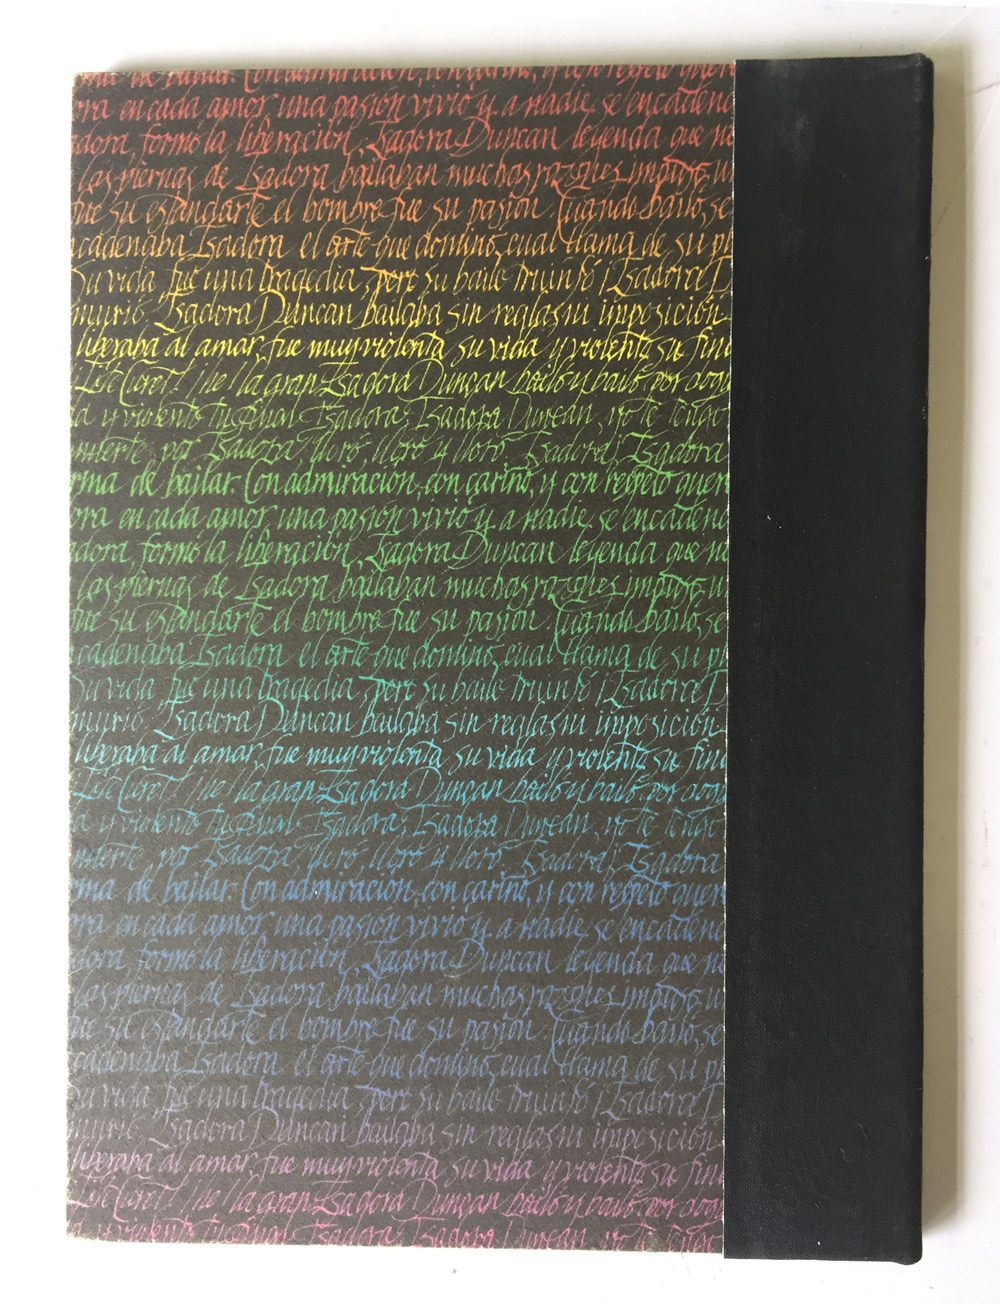 rma de bailar. Con admiración, con cariño, y con respeto quer
ora en cada amor, una pasión vivió y a nadie se encadenó
adora formó la liberación, Isadora Duncan leyenda que no
las piernas de Isadora bailaban muchas razones impuso u
fue su estandarte el hombre fue su pasión Cuando bailó, se
ncadenaba Isadora el arte que dominó, cual llama de su pr
su vida fue una tragedia, pero su baile triunfó ¡Isadora! D
murió Isadora Duncan bailaba sin reglas ni imposición
liberaba al amar, fue muy violenta su vida y violento su fina
de la gran Isadora Duncan bailó y bailó por
a y violento tu final Isadora, Isadora Duncan, yo te tengo
muerte por Isadora lloró, lloró y lloró Isadora, Isadora
rma de bailar. Con admiración, con cariño, y con respeto quer
ora en cada amor, una pasión vivió y a nadie se encadenó
adora formó la liberación, Isadora Duncan leyenda que no
las piernas de Isadora bailaban muchas razones impuso u
fue su estandarte el hombre fue su pasión Cuando bailó, se
ncadenaba Isadora el arte que dominó, cual llama de su pr
su vida fue una tragedia, pero su baile triunfó ¡Isadora! D
murió Isadora Duncan bailaba sin reglas ni imposición
liberaba al amar, fue muy violenta su vida y violento su fina
de la gran Isadora Duncan bailó y bailó por
a y violento tu final Isadora, Isadora Duncan, yo te tengo
muerte por Isadora lloró, lloró y lloró Isadora, Isadora
rma de bailar. Con admiración, con cariño, y con respeto quer
ora en cada amor, una pasión vivió y a nadie se encadenó
adora formó la liberación, Isadora Duncan leyenda que no
las piernas de Isadora bailaban muchas razones impuso u
fue su estandarte el hombre fue su pasión Cuando bailó, se
ncadenaba Isadora el arte que dominó, cual llama de su pr
su vida fue una tragedia, pero su baile triunfó ¡Isadora! D
murió Isadora Duncan bailaba sin reglas ni imposición
liberaba al amar, fue muy violenta su vida y violento su fina
de la gran Isadora Duncan bailó y bailó por
a y violento tu final Isadora, Isadora Duncan, yo te tengo